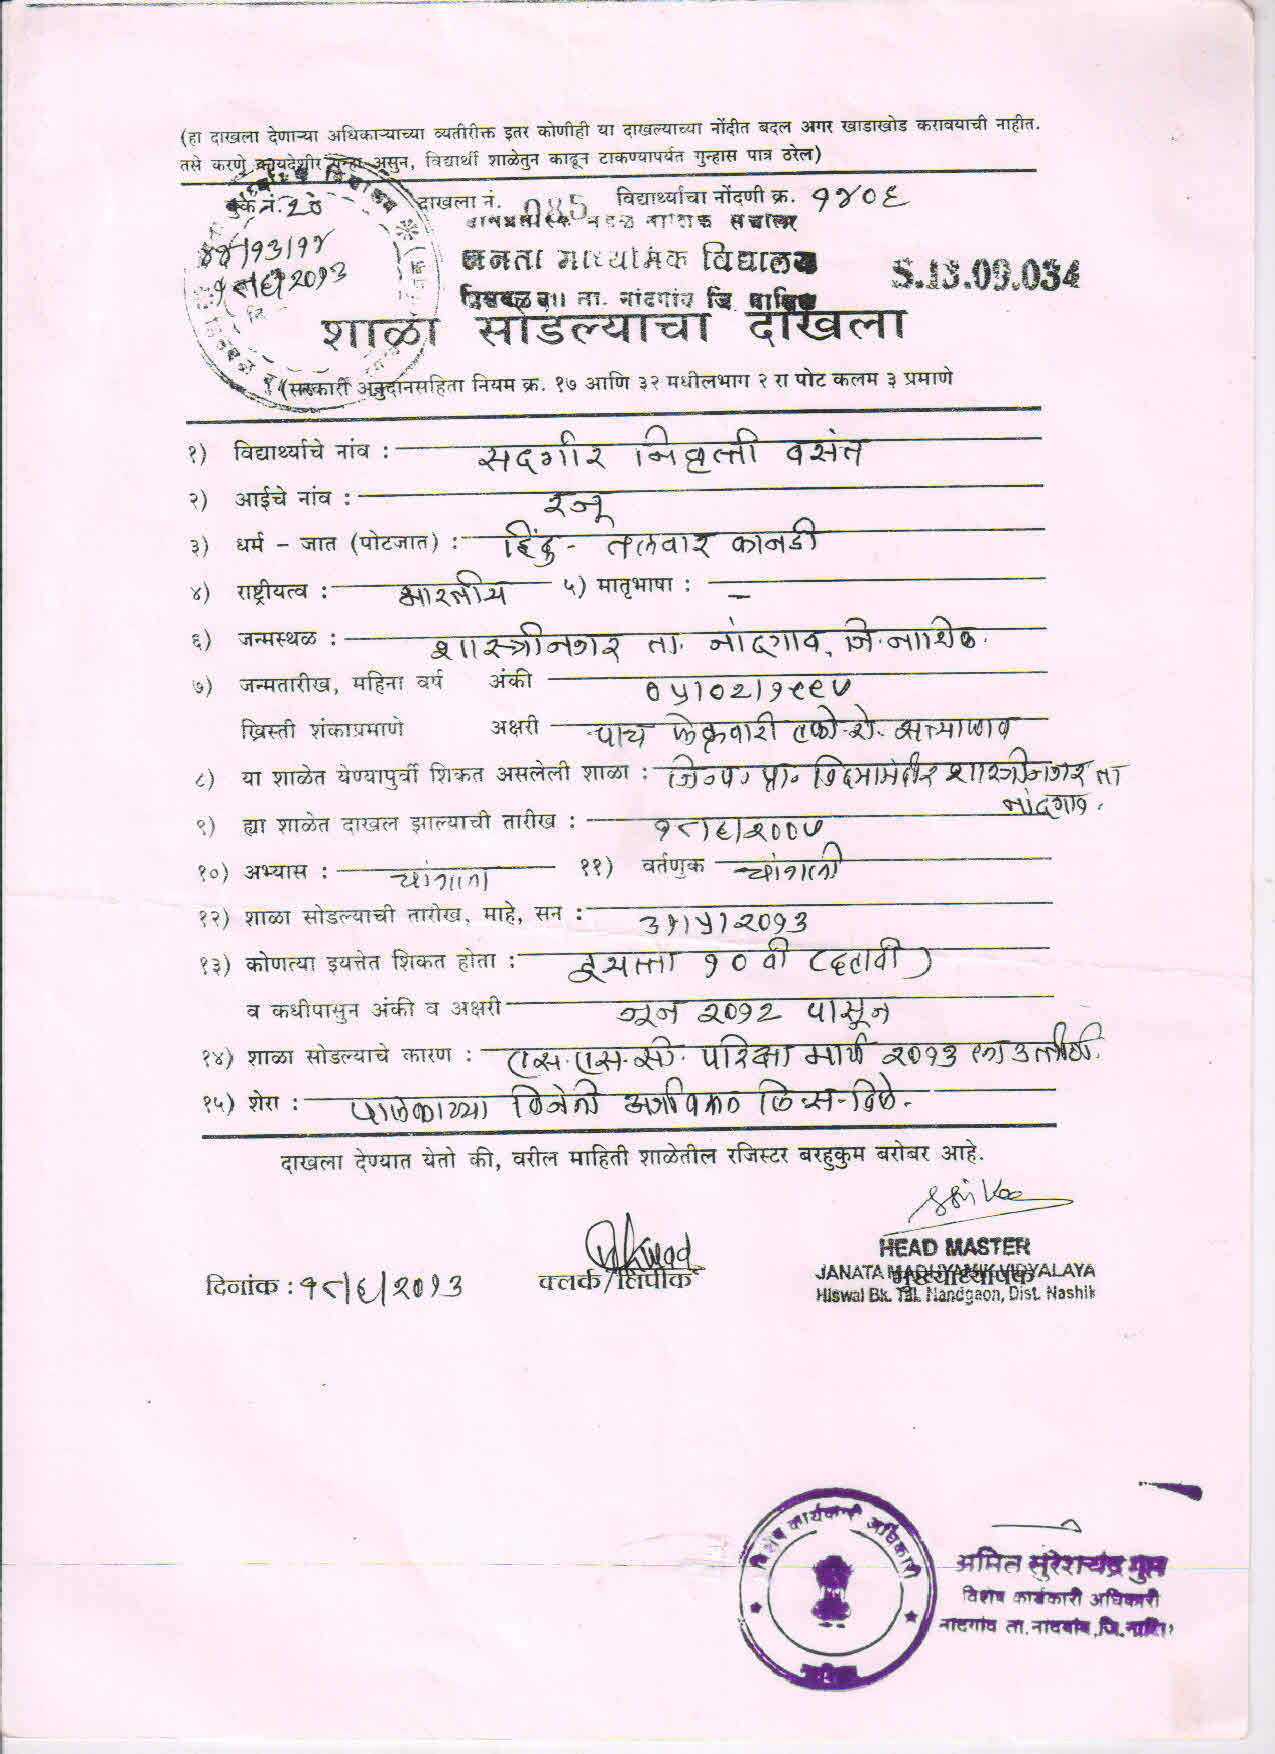 (हा दाखला देणाऱ्या अधिकाऱ्याच्या व्यतीरीक्त इतर कोणीही या दाखल्याच्या नोंदीत बदल अगर खाडाखोड करावयाची नाहीत.
तसे करणे कायदेशीर गुन्हा असुन, विद्यार्थी शाळेतुन काढून टाकण्यापर्यंत गुन्हास पात्र ठरेल)
बुक नं. २० दाखला नं. विद्यार्थ्याचा नोंदणी क्र. १४०६
जनता माध्यमिक विद्यालय S.13.09.034
ता. नांदगांव जि. नाशिक
१८/६/२०१३
शाळा सोडल्याचा दाखला
(सरकारी अनुदानसहिता नियम क्र. १७ आणि ३२ मधीलभाग २ रा पोट कलम ३ प्रमाणे
१) विद्यार्थ्याचे नांव : सदगीर निवृत्ती वसंत
२) आईचे नांव : रजू
३) धर्म - जात (पोटजात) : हिंदु - तलवार कानडी
४) राष्ट्रीयत्व : भारतीय ५) मातृभाषा : -
६) जन्मस्थळ : शास्त्रीनगर ता. नांदगाव, जि. नाशिक.
७) जन्मतारीख, महिना वर्ष अंकी ०५/०२/१९९७
ख्रिस्ती शंकाप्रमाणे अक्षरी पाच फेब्रुवारी एकोणीसशे सत्त्याण्णव
८) या शाळेत येण्यापुर्वी शिकत असलेली शाळा : जि.प. प्रा. विद्यामंदीर शास्त्रीनगर ता
नांदगाव.
९) ह्या शाळेत दाखल झाल्याची तारीख : १८/६/२००७
१०) अभ्यास : चांगला ११) वर्तणुक चांगली
१२) शाळा सोडल्याची तारीख, माहे, सन : ३१/५/२०१३
१३) कोणत्या इयत्तेत शिकत होता : इयत्ता १० वी (दहावी)
व कधीपासुन अंकी व अक्षरी जून २०१२ पासून
१४) शाळा सोडल्याचे कारण : एस.एस.सी. परिक्षा मार्च २०१३ ला उत्तीर्ण.
१५) शेरा : पालकाच्या विनंती अर्जावरून दिले.
दाखला देण्यात येतो की, वरील माहिती शाळेतील रजिस्टर बरहुकुम बरोबर आहे.
दिनांक : १८/६/२०१३ क्लर्क/लिपीक मुख्याध्यापक
HEAD MASTER
JANATA MADHYAMIK VIDYALAYA
Hiswal Bk. Tal. Nandgaon, Dist. Nashik
विशेष कार्यकारी अधिकारी
अमित सुरेशचंद्र गुप्त
विशेष कार्यकारी अधिकारी
नांदगांव ता. नांदगांव, जि. नाशिक